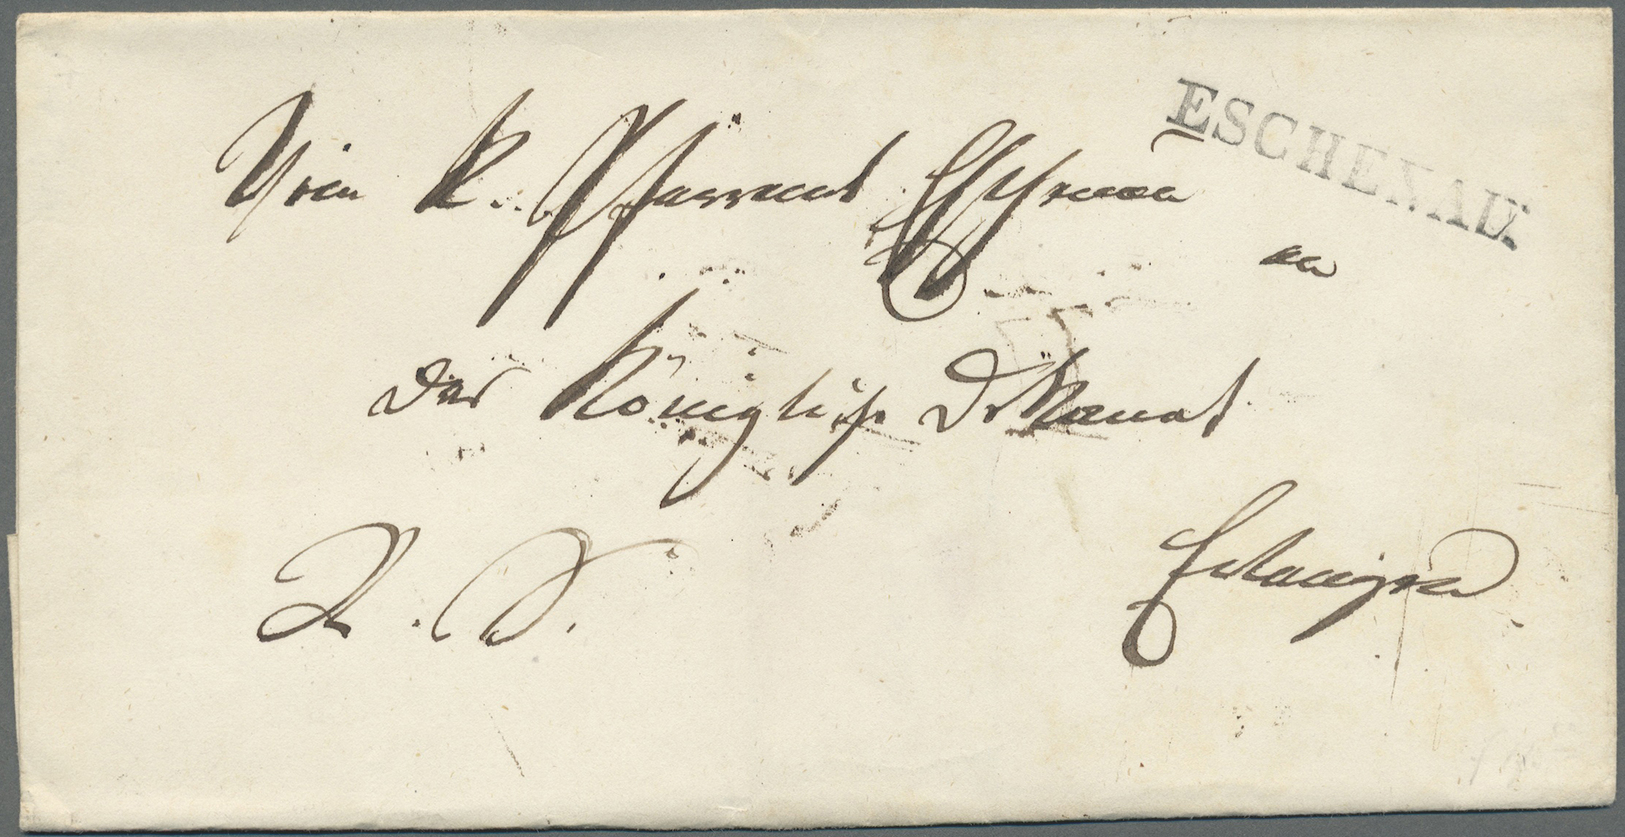 ESCHENAU
Vom K. Pfarramt Eschenau
an
das Königliche Dekanat
Erlangen
R. S.